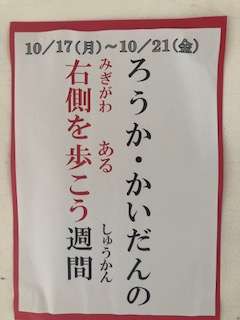 10/17(月)~10/21(金)
ろうか・かいだんの
右側を歩こう週間
みぎがわ ある しゅうかん